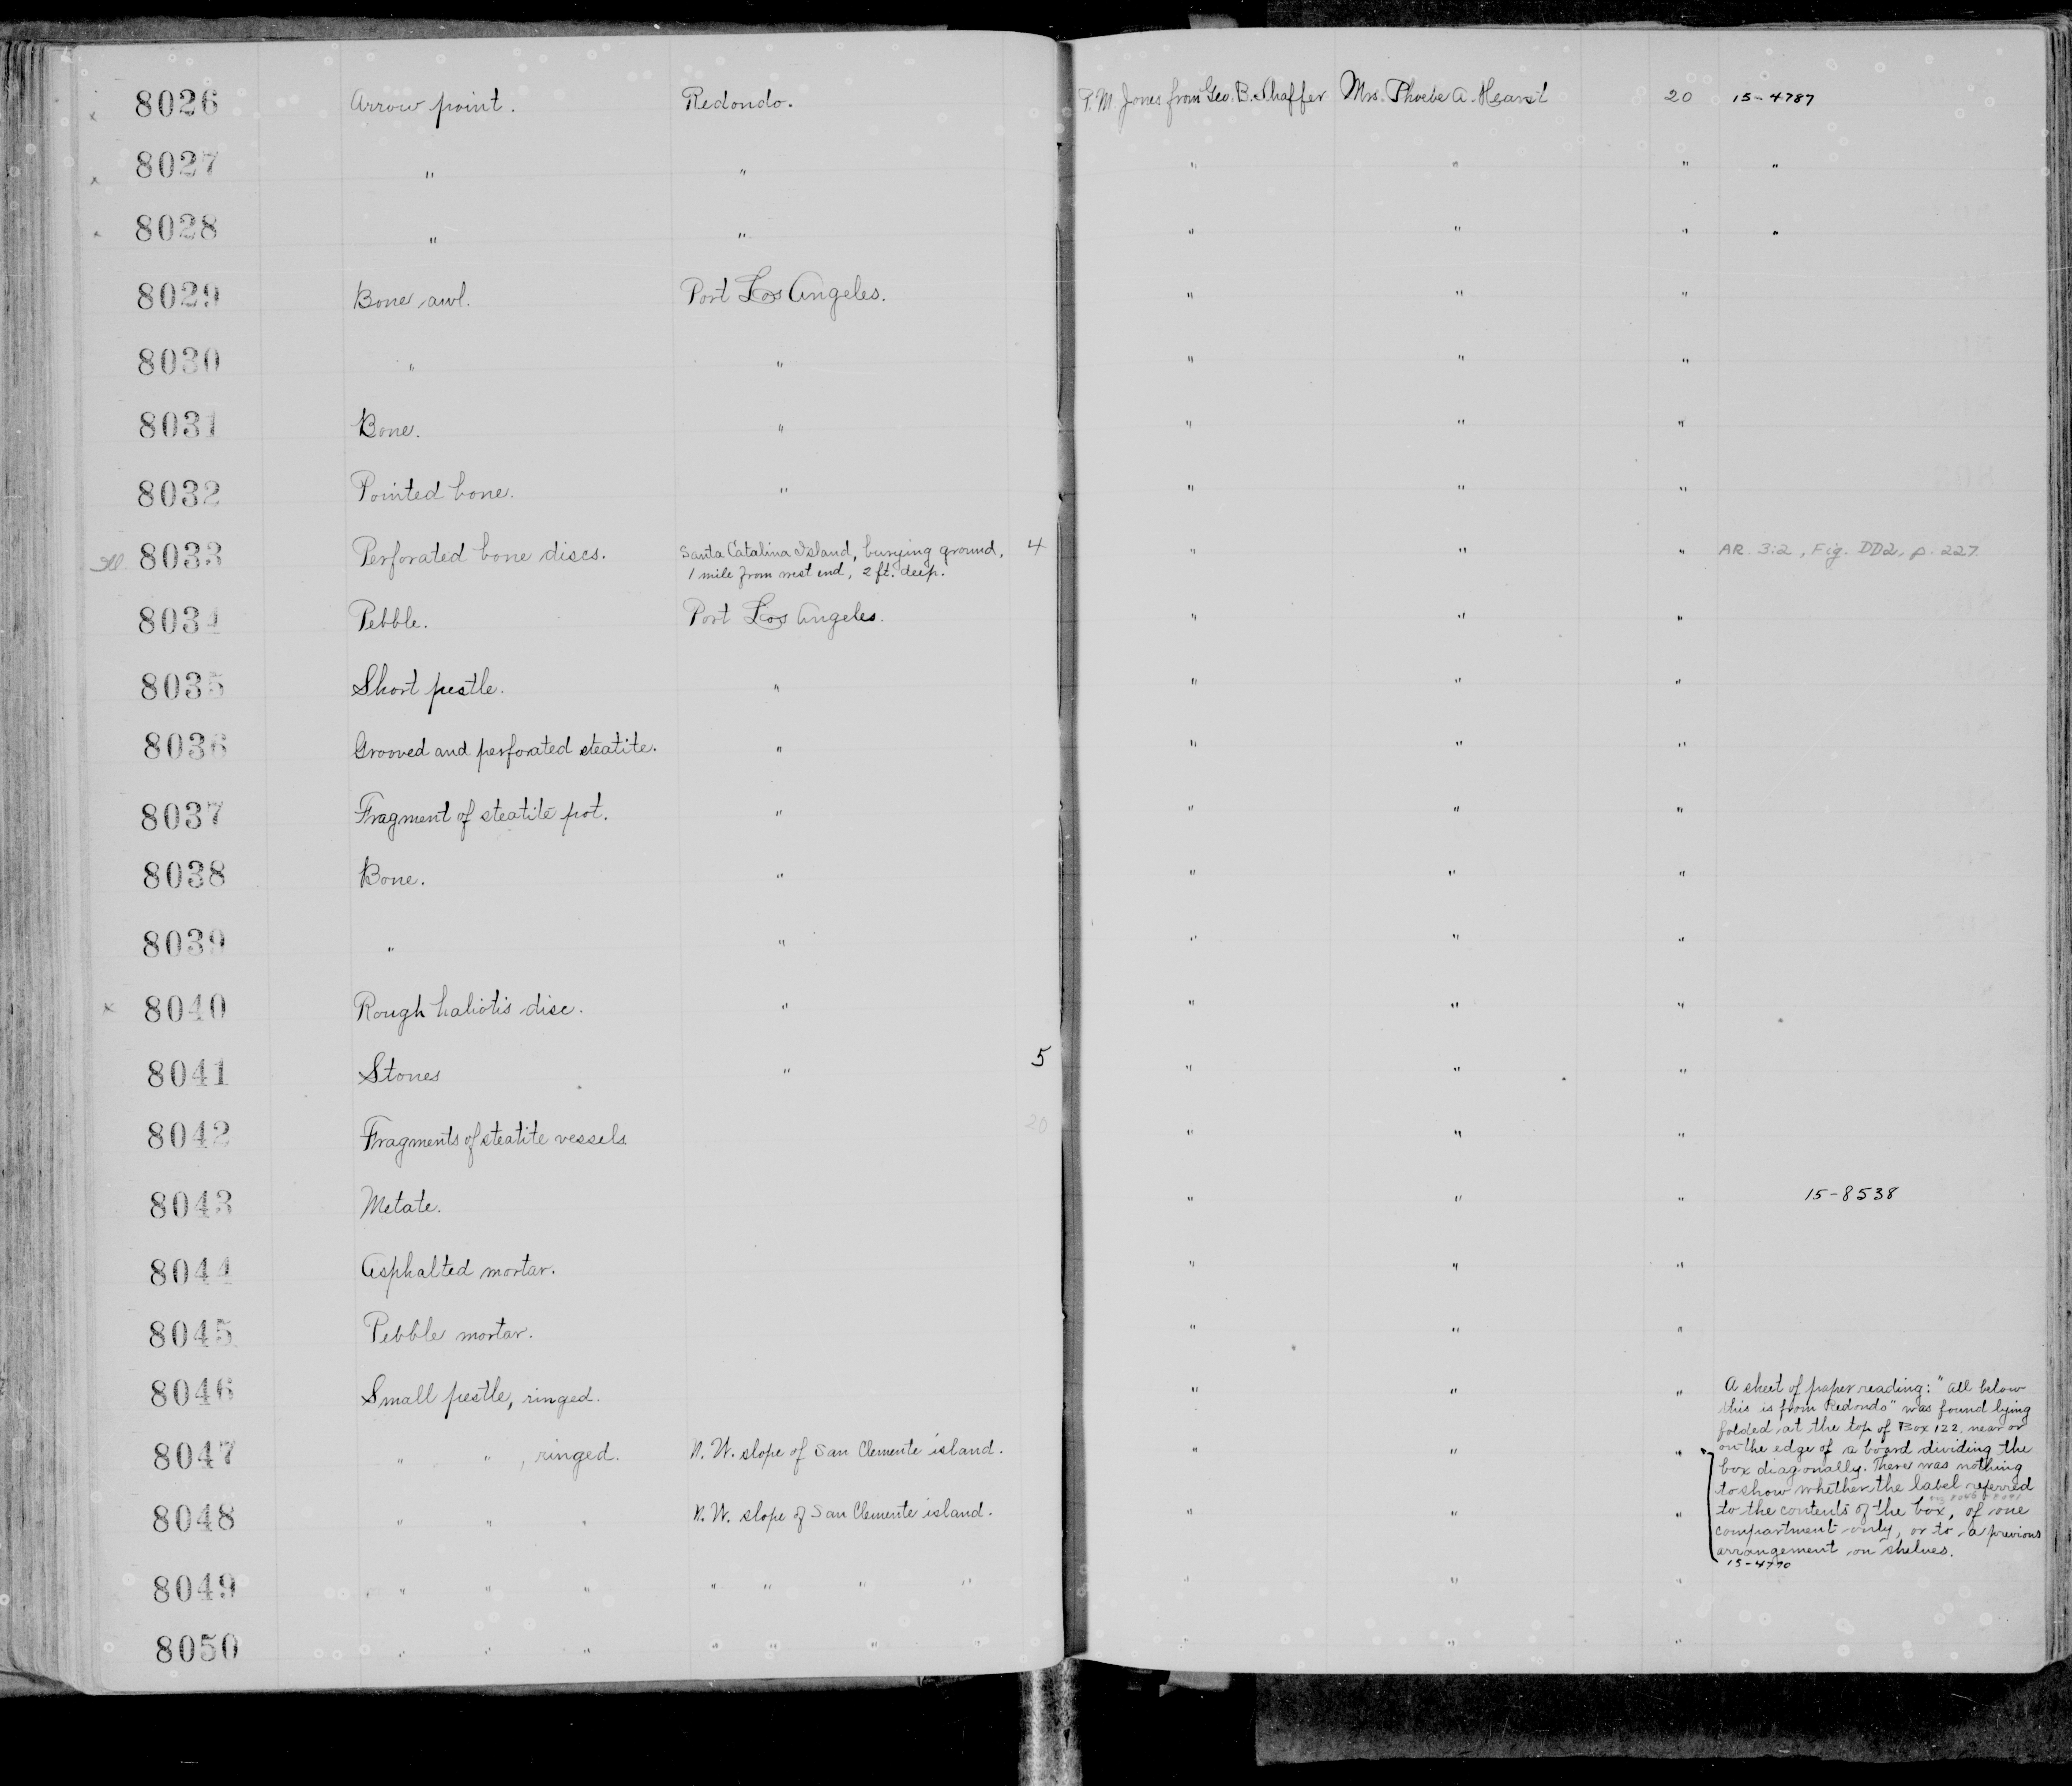 8026 Arrow point. Redondo. P. M. Jones from Geo. B. Shaffer Mrs. Phoebe A. Hearst 20 15-4787
8027 " " " " " "
8028 " " " " " "
8029 Bone awl. Port Los Angeles. " " "
8030 " " " " "
8031 Bone. " " " "
8032 Pointed bone. " " " "
8033 Perforated bone discs. Santa Catalina Island, burying ground, 4 " " " AR. 3:2, Fig. DD2, p. 227.
1 mile from west end, 2 ft. deep.
8034 Pebble. Port Los Angeles. " " "
8035 Short pestle. " " " "
8036 Grooved and perforated steatite. " " " "
8037 Fragment of steatite pot. " " " "
8038 Bone. " " " "
8039 " " " " "
8040 Rough haliotis disc. " " " "
8041 Stones " 5 " " "
8042 Fragments of steatite vessels 20 " " "
8043 Metate. " " " 15-8538
8044 Asphalted mortar. " " "
8045 Pebble mortar. " " "
8046 Small pestle, ringed. " " "
8047 " " , ringed. N. W. slope of San Clemente island. " " "
8048 " " " N. W. slope of San Clemente island. " " "
8049 " " " " " " " " " "
8050 " " " " " " " " " "
A sheet of paper reading: "All below
this is from Redondo" was found lying
folded at the top of Box 122, near or
on the edge of a board dividing the
box diagonally. There was nothing
to show whether the label referred
to the contents of the box, of one
compartment only, or to a previous
arrangement on shelves.
15-4790